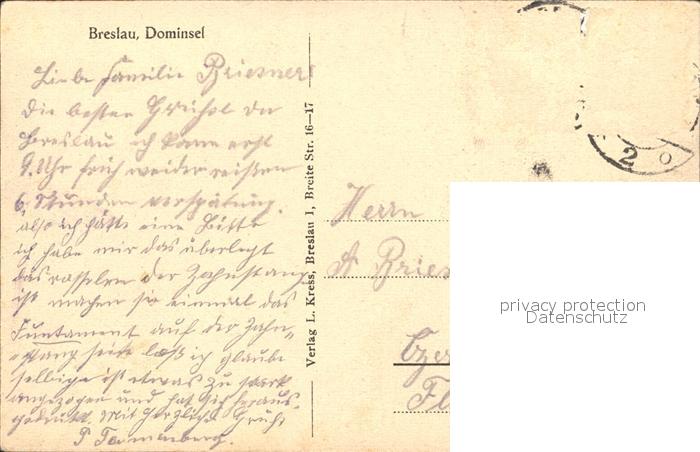 Breslau, Dominsel
Liebe Familie Briesner!
Die besten Grüße von
Breslau ich kann erst
9 Uhr früh weiter reisen
6 Stunden verspätung.
also ich hätte eine Bitte
ich habe mir das überlegt
das rasseln der Zahnstange
ist machen sie einmal das
Funtament auf der Zahn-
stang seite laß ich glaube
selbige ist etwas zu stark
angezogen und hat sich heraus-
gedrückt. Mit herzliche Gruß
P
Verlag L. Kress, Breslau 1, Breite Str. 16—17
2 0
Herrn
A Bries
privacy protection
Datenschutz